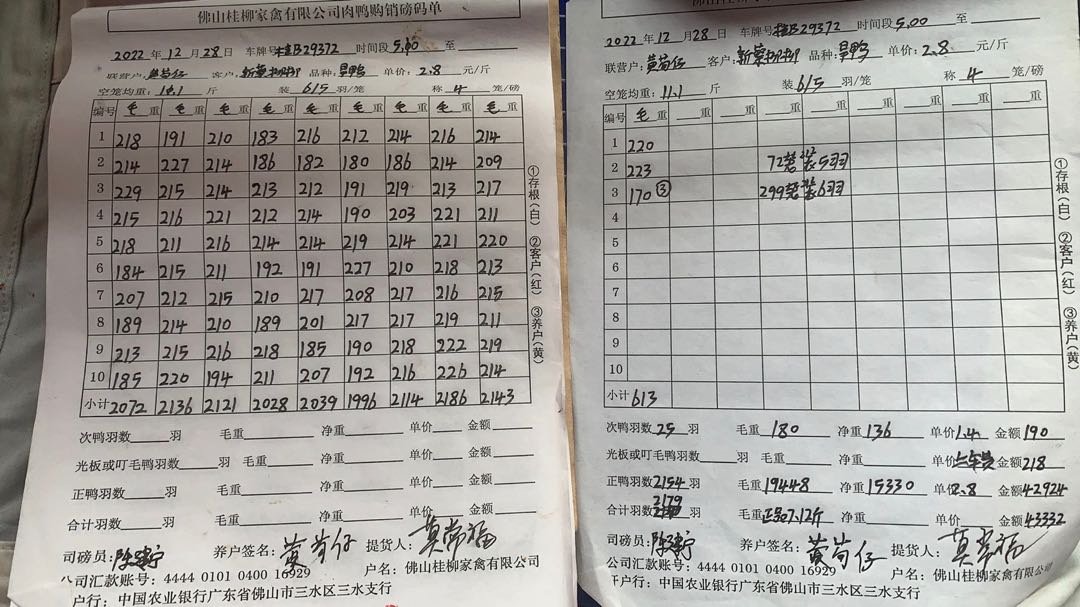 佛山桂柳家禽有限公司肉鸭购销磅码单
2022年12月28日 车牌号桂B29372 时间段5.00至
联营户:黄苟仔 客户: 品种: 单价:2.8元/斤
空笼均重:11.1斤 装6/5羽/笼 称4笼/磅
编号 毛重 毛重 毛重 毛重 毛重 毛重 毛重 毛重 毛重
1 218 191 210 183 216 212 214 216 214
2 214 227 214 186 182 180 186 214 209
3 229 215 214 213 212 191 219 213 217
4 215 216 221 212 214 190 203 221 211
5 218 211 216 214 214 219 214 221 220
6 184 215 211 192 191 227 210 218 213
7 207 212 215 210 217 208 217 216 215
8 189 214 210 189 201 217 217 219 211
9 213 215 216 218 185 190 218 222 219
10 185 220 194 211 207 192 216 226 214
小计 2072 2136 2121 2028 2039 1996 2114 2186 2143
①存根(白) ②客户(红) ③养户(黄)
次鸭羽数 羽 毛重 净重 单价 金额
光板或叮毛鸭羽数 羽 毛重 净重 单价 金额
正鸭羽数 羽 毛重 净重 单价 金额
合计羽数 羽 毛重 净重 单价 金额
司磅员: 养户签名:黄苟仔 提货人:莫常福
公司汇款账号:4444 0101 0400 16929 户名:佛山桂柳家禽有限公司
户行:中国农业银行广东省佛山市三水区三水支行
2022年12月28日 车牌号桂B29372 时间段5.00至
联营户:黄苟仔 客户: 品种: 单价:2.8元/斤
空笼均重:11.1斤 装6/5羽/笼 称4笼/磅
编号 毛重 重 重 重 重 重 重 重 重
1 220
2 223 72笼装5羽
3 170③ 299笼装6羽
4
5
6
7
8
9
10
小计 613
①存根(白) ②客户(红) ③养户(黄)
次鸭羽数25羽 毛重180 净重136 单价1.4 金额190
光板或叮毛鸭羽数 羽 毛重 净重 单价 金额218
正鸭羽数2154羽 毛重19448 净重15330 单价2.8 金额42924
合计羽数2179羽 毛重正品7.12斤 净重 单价 金额43332
司磅员: 养户签名:黄苟仔 提货人:莫常福
公司汇款账号:4444 0101 0400 16929 户名:佛山桂柳家禽有限公司
开户行:中国农业银行广东省佛山市三水区三水支行